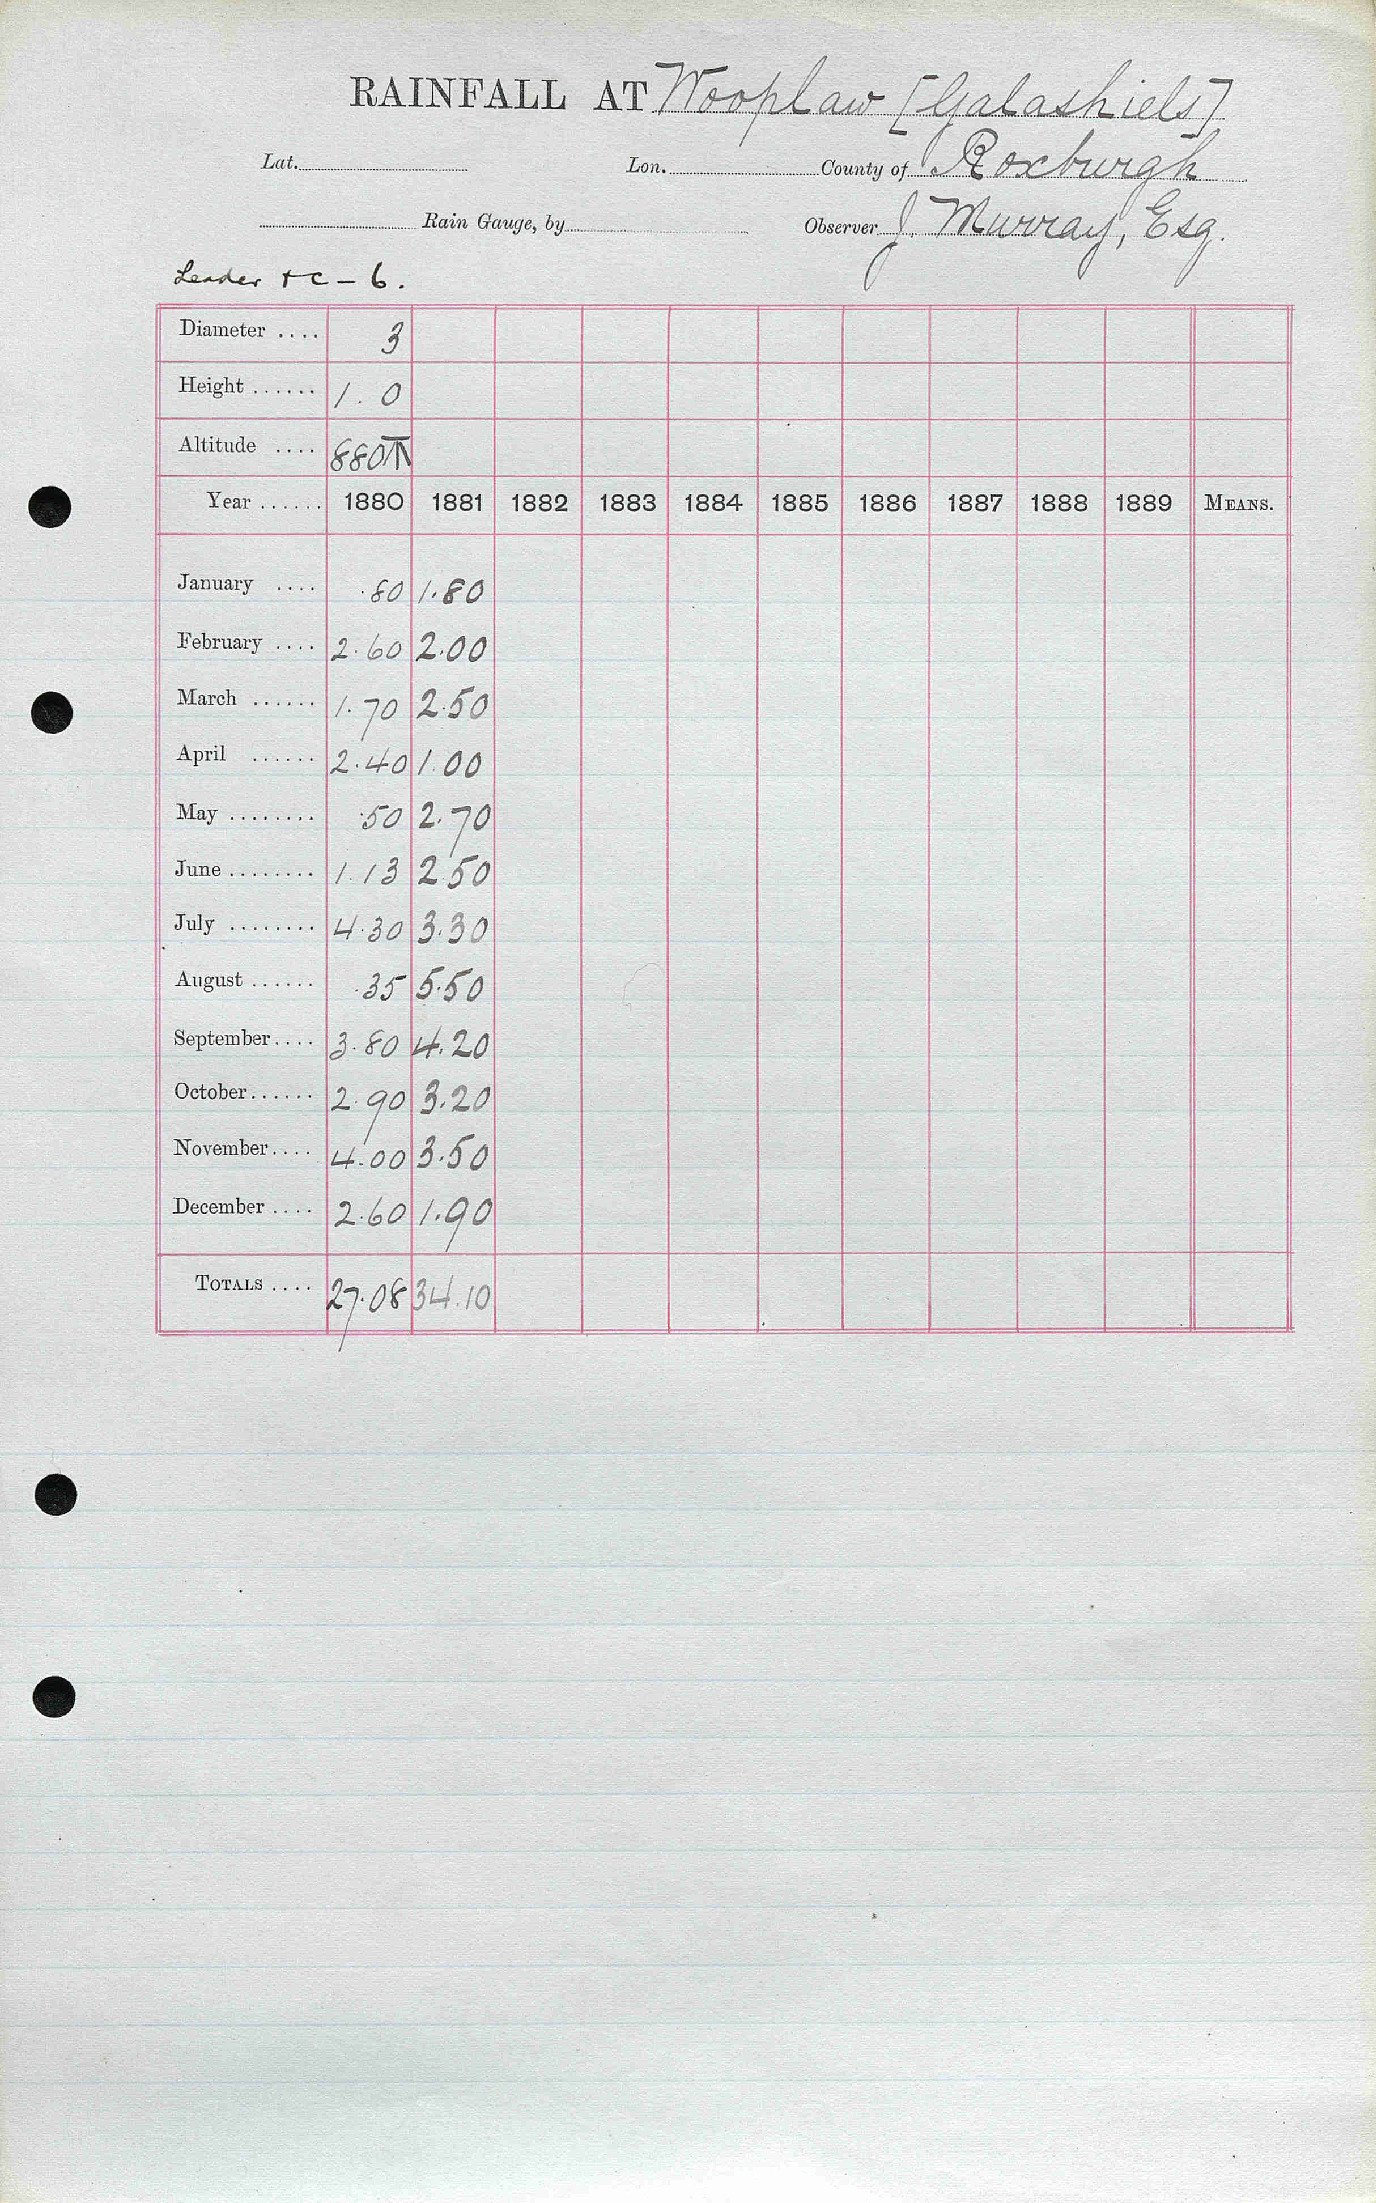 RAINFALL AT Wooplaw [Galashiels]
Lat. Lon. County of Roxburgh
Rain Gauge, by Observer J. Murray, Esq.
Leader &c - 6.
Diameter .... 3
Height ...... 1. 0
Altitude .... 880
Year ...... 1880 1881 1882 1883 1884 1885 1886 1887 1888 1889 MEANS.
January .... .80 1.80
February .... 2.60 2.00
March ...... 1.70 2.50
April ...... 2.40 1.00
May ........ .50 2.70
June ........ 1.13 2.50
July ........ 4.30 3.30
August ...... .35 5.50
September .... 3.80 4.20
October ...... 2.90 3.20
November .... 4.00 3.50
December .... 2.60 1.90
TOTALS .... 27.08 34.10